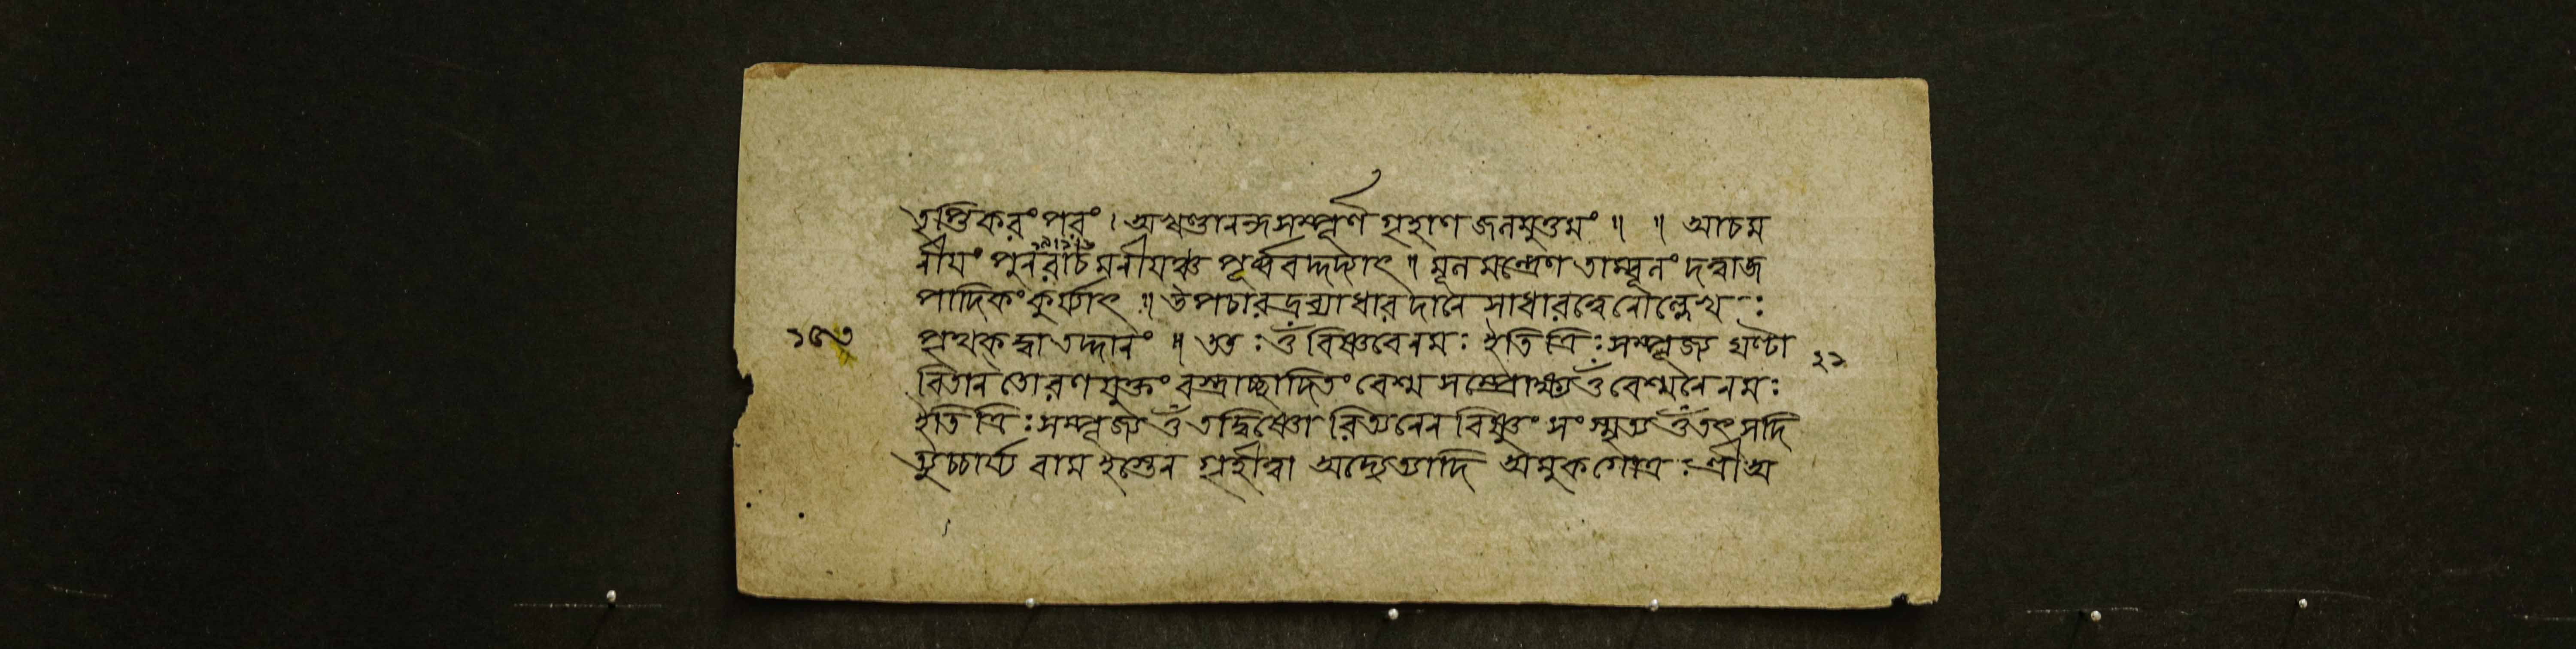 তৃপ্তিকরং পরং । অখণ্ডানন্দসম্পূর্ণ গৃহাণ জলমুত্তমং ॥ ॥ আচম
নীয়ং পুনরাচমনীয়ঞ্চ পূর্ব্ববদ্দদ্যাৎ ॥ মূলমন্ত্রেণ তাম্বূলং দত্বা জ
পাদিকং কুর্য্যাৎ ॥ উপচারদ্রব্যাধারদানে সাধারত্বেনোল্লেখঃ
পৃথক্কৃত্বা তদ্দানং ॥ ততঃ ওঁ বিষ্ণবে নমঃ ইতি ত্রিঃ সম্পূজ্য ঘণ্টা
বিতানতোরণযুক্তং বস্ত্রাচ্ছাদিতং বেশ্ম সম্প্রোক্ষ্য ওঁ বেশ্মনে নমঃ
ইতি ত্রিঃ সম্পূজ্য ওঁ তদ্বিষ্ণোরিত্যনেন বিষ্ণুং সংস্মৃত্য ওঁ তৎ সদি
ত্যুচ্চার্য্য বামহস্তেন গৃহীত্বা অদ্যেত্যাদি অমুকগোত্রঃ শ্রীঅ
২২